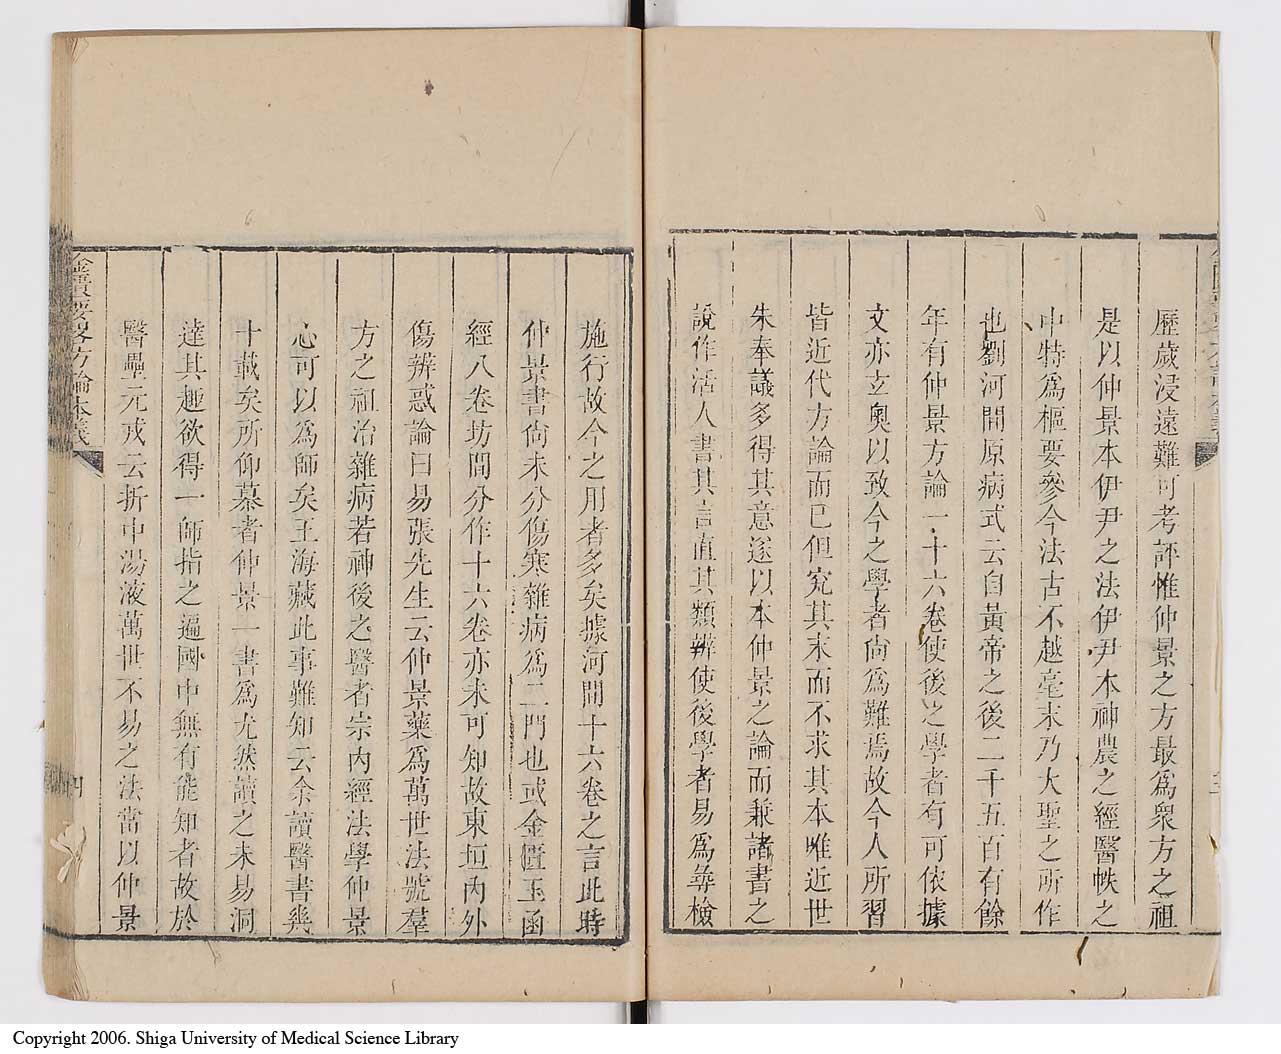 歷歲浸遠難可考評惟仲景之方最爲衆方之祖
是以仲景本伊尹之法伊尹本神農之經醫帙之
中特爲樞要參今法古不越毫末乃大聖之所作
也劉河間原病式云自黃帝之後二千五百有餘
年有仲景方論一十六卷使後之學者有可依據
文亦玄奧以致今之學者尙爲難焉故今人所習
皆近代方論而已但究其末而不求其本唯近世
朱奉議多得其意遂以本仲景之論而兼諸書之
說作活人書其言直其類辨使後學者易爲尋檢
施行故今之用者多矣據河間十六卷之言此時
仲景書尙未分傷寒雜病爲二門也或金匱玉函
經八卷坊間分作十六卷亦未可知故東垣內外
傷辨惑論曰易張先生云仲景藥爲萬世法號羣
方之祖治雜病若神後之醫者宗內經法學仲景
心可以爲師矣王海藏此事難知云余讀醫書幾
十載矣所仰慕者仲景一書爲尤然讀之未易洞
達其趣欲得一師指之遍國中無有能知者故於
醫壘元戎云折中湯液萬世不易之法當以仲景
金匱要略方論本義
四
Copyright 2006. Shiga University of Medical Science Library